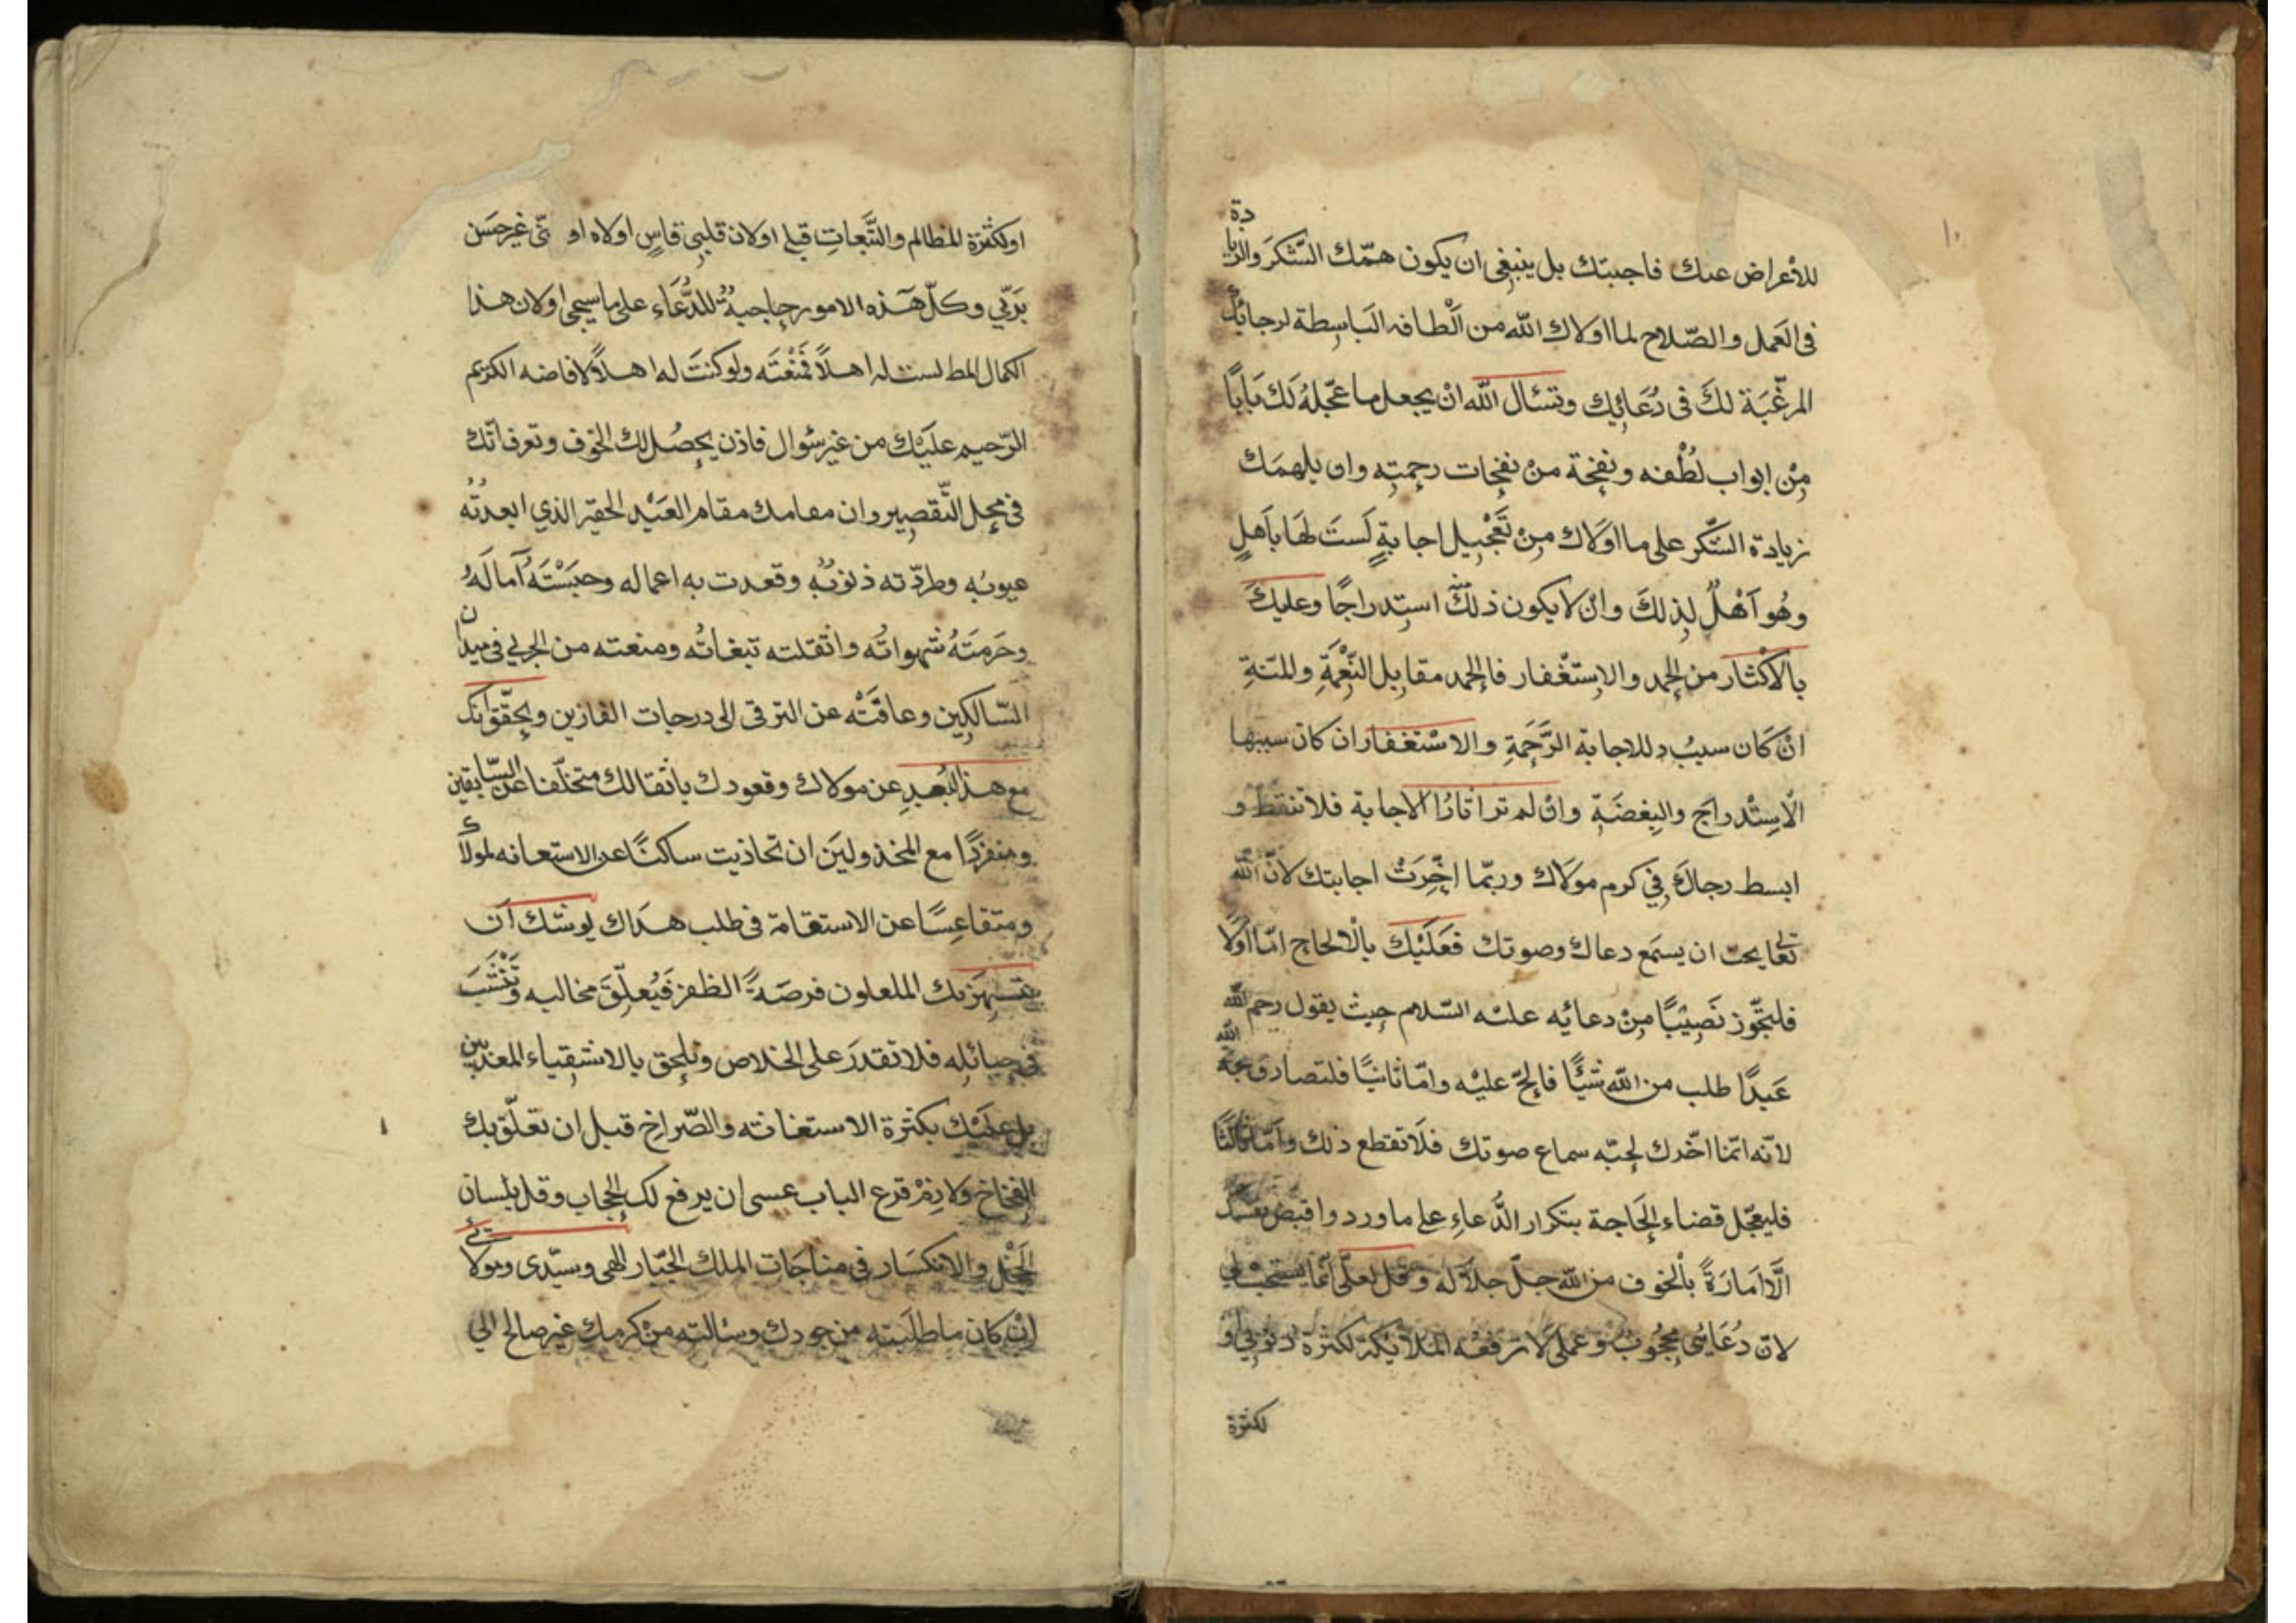 ١٠
للأعراض عنك فاجبتك بل ينبغى ان يكون همّك الشّكر والزيادة
فى العَمل والصّلاح لما اولاك الله من اَلْطافه الباسِطة لرجائك
المرغّبَة لكَ فى دُعَائِك وتسئال الله انْ يجعل ما عجّلهُ لَكَ بَابًا
مِنْ ابواب لُطْفه ونفحة منْ نفحات رحمتِه وان يلهمَك
زيادة الشّكر على ما اوَلاك مِنْ تَعْجيل اجابةٍ لَستَ لهَا بأهلٍ
وهُو آهْلٌ لِذلكَ وانْ لا يكون ذلكَ استِدراجًا وعليكَ
بالاكْثار من الحمد والاستغْفار فالحمد مقابل النِّعْمَةِ والمنّةِ
انْ كَان سببُ للاجابة الرَّحَمةِ والاسْتغفار ان كان سببها
الْاسِتْدراجَ والبغضَةِ وانْ لم تر اثارًا لاجابة فلا تقنط و
ابسط رجاكَ فِي كرم موَلاك وربّما اخِّرَتْ اجابتك لانّ الله
تعالى يحبّ ان يستمَع دعاك وصوتك فعَلَيْك بالْالحاح امّا اوّلًا
فليحّوز نَصِيْبًا مِنْ دعائه عليْه السّلام حيث يقول رحم الله
عَبدًا طلب من الله شيئًا فالحّ عليْه وامّا ثانيًا فلتصادق محبّة الله
لانّه انّما اخّرك لحبّه سماع صوتك فلَا تقطع ذلك وامّا ثالثًا
فليعجّل قضاء الحَاجة بتكرار الدُّعاءِ على ما ورد واقبض نفسك
الَّا امَارَةً بالْخوف من الله جلّ جلاَله وقل لعلّى انّما يستجب لى
لانّ دُعَائى محْجُوبٌ وعملى لا ترفعْه الملائيكة لكثرة ذنوبي و
لكثرة
اولكثرة المظالم والتّبعاتِ قبلى اولان قلبِى قاسٍ اولاه او نّى غير حسَن
بَربّي وكلّ هَذه الامور حاجبةٌ للدُّعَاء على ما سيجى اولان هذا
الكمال المط لست له اهلاً فمنعْتَه ولو كنتَ له اهلاً لافاضه الكريم
الرّحيم عليَكْ من غير سُوال فاذن يحصُل لك الخوف وتعرف انّك
فى محِل التّقصِير وان مقامك مقام العَبْد الحقير الذي ابعدتُه
عيوبُه وطردّته ذنوبُه وقعدت به اعماله وحبَسْتَهُ آمالَهُ
وحَرمَتَهُ شهواتُه واثقلته تبعاتُه ومنعته من الجري فى ميدان
السّالكِين وعاقَتْه عن الترقى الى درجات الفازين ويحقّق انك
مع هذ البُعدِ عن مولاك وقعودك باثقالك متخلّفا عن السّابقين
ومنفردًا مع المخذولين ان تحاذيت ساكتًا عن الاستعانه لمولاك
ومتقاعِسًا عن الاستقامة فى طلب هدَاك يوشك ان
يتهز بك الملعون فرصَةً الظفر فَيُعلّقَ مخالبه وَتَنْشَبَ
فى حبائله فلا تقدرَ على الخلاص وتلحق بالاشقياء المعذبين
بل عليْك بكثرة الاستغاثه والصّراخ قبل ان تعلّق بك
الفخاخ ولازِمْ قرع الباب عسى ان يرفع لك الحجاب وقل بلسان
الخَجْل والانكسَار فى مناجَات الملك الجّبار الهى وسيّدى ومولائى
انْ كان ما طلبَته من جودك وسئالته منْ كرمك غير صالح الي